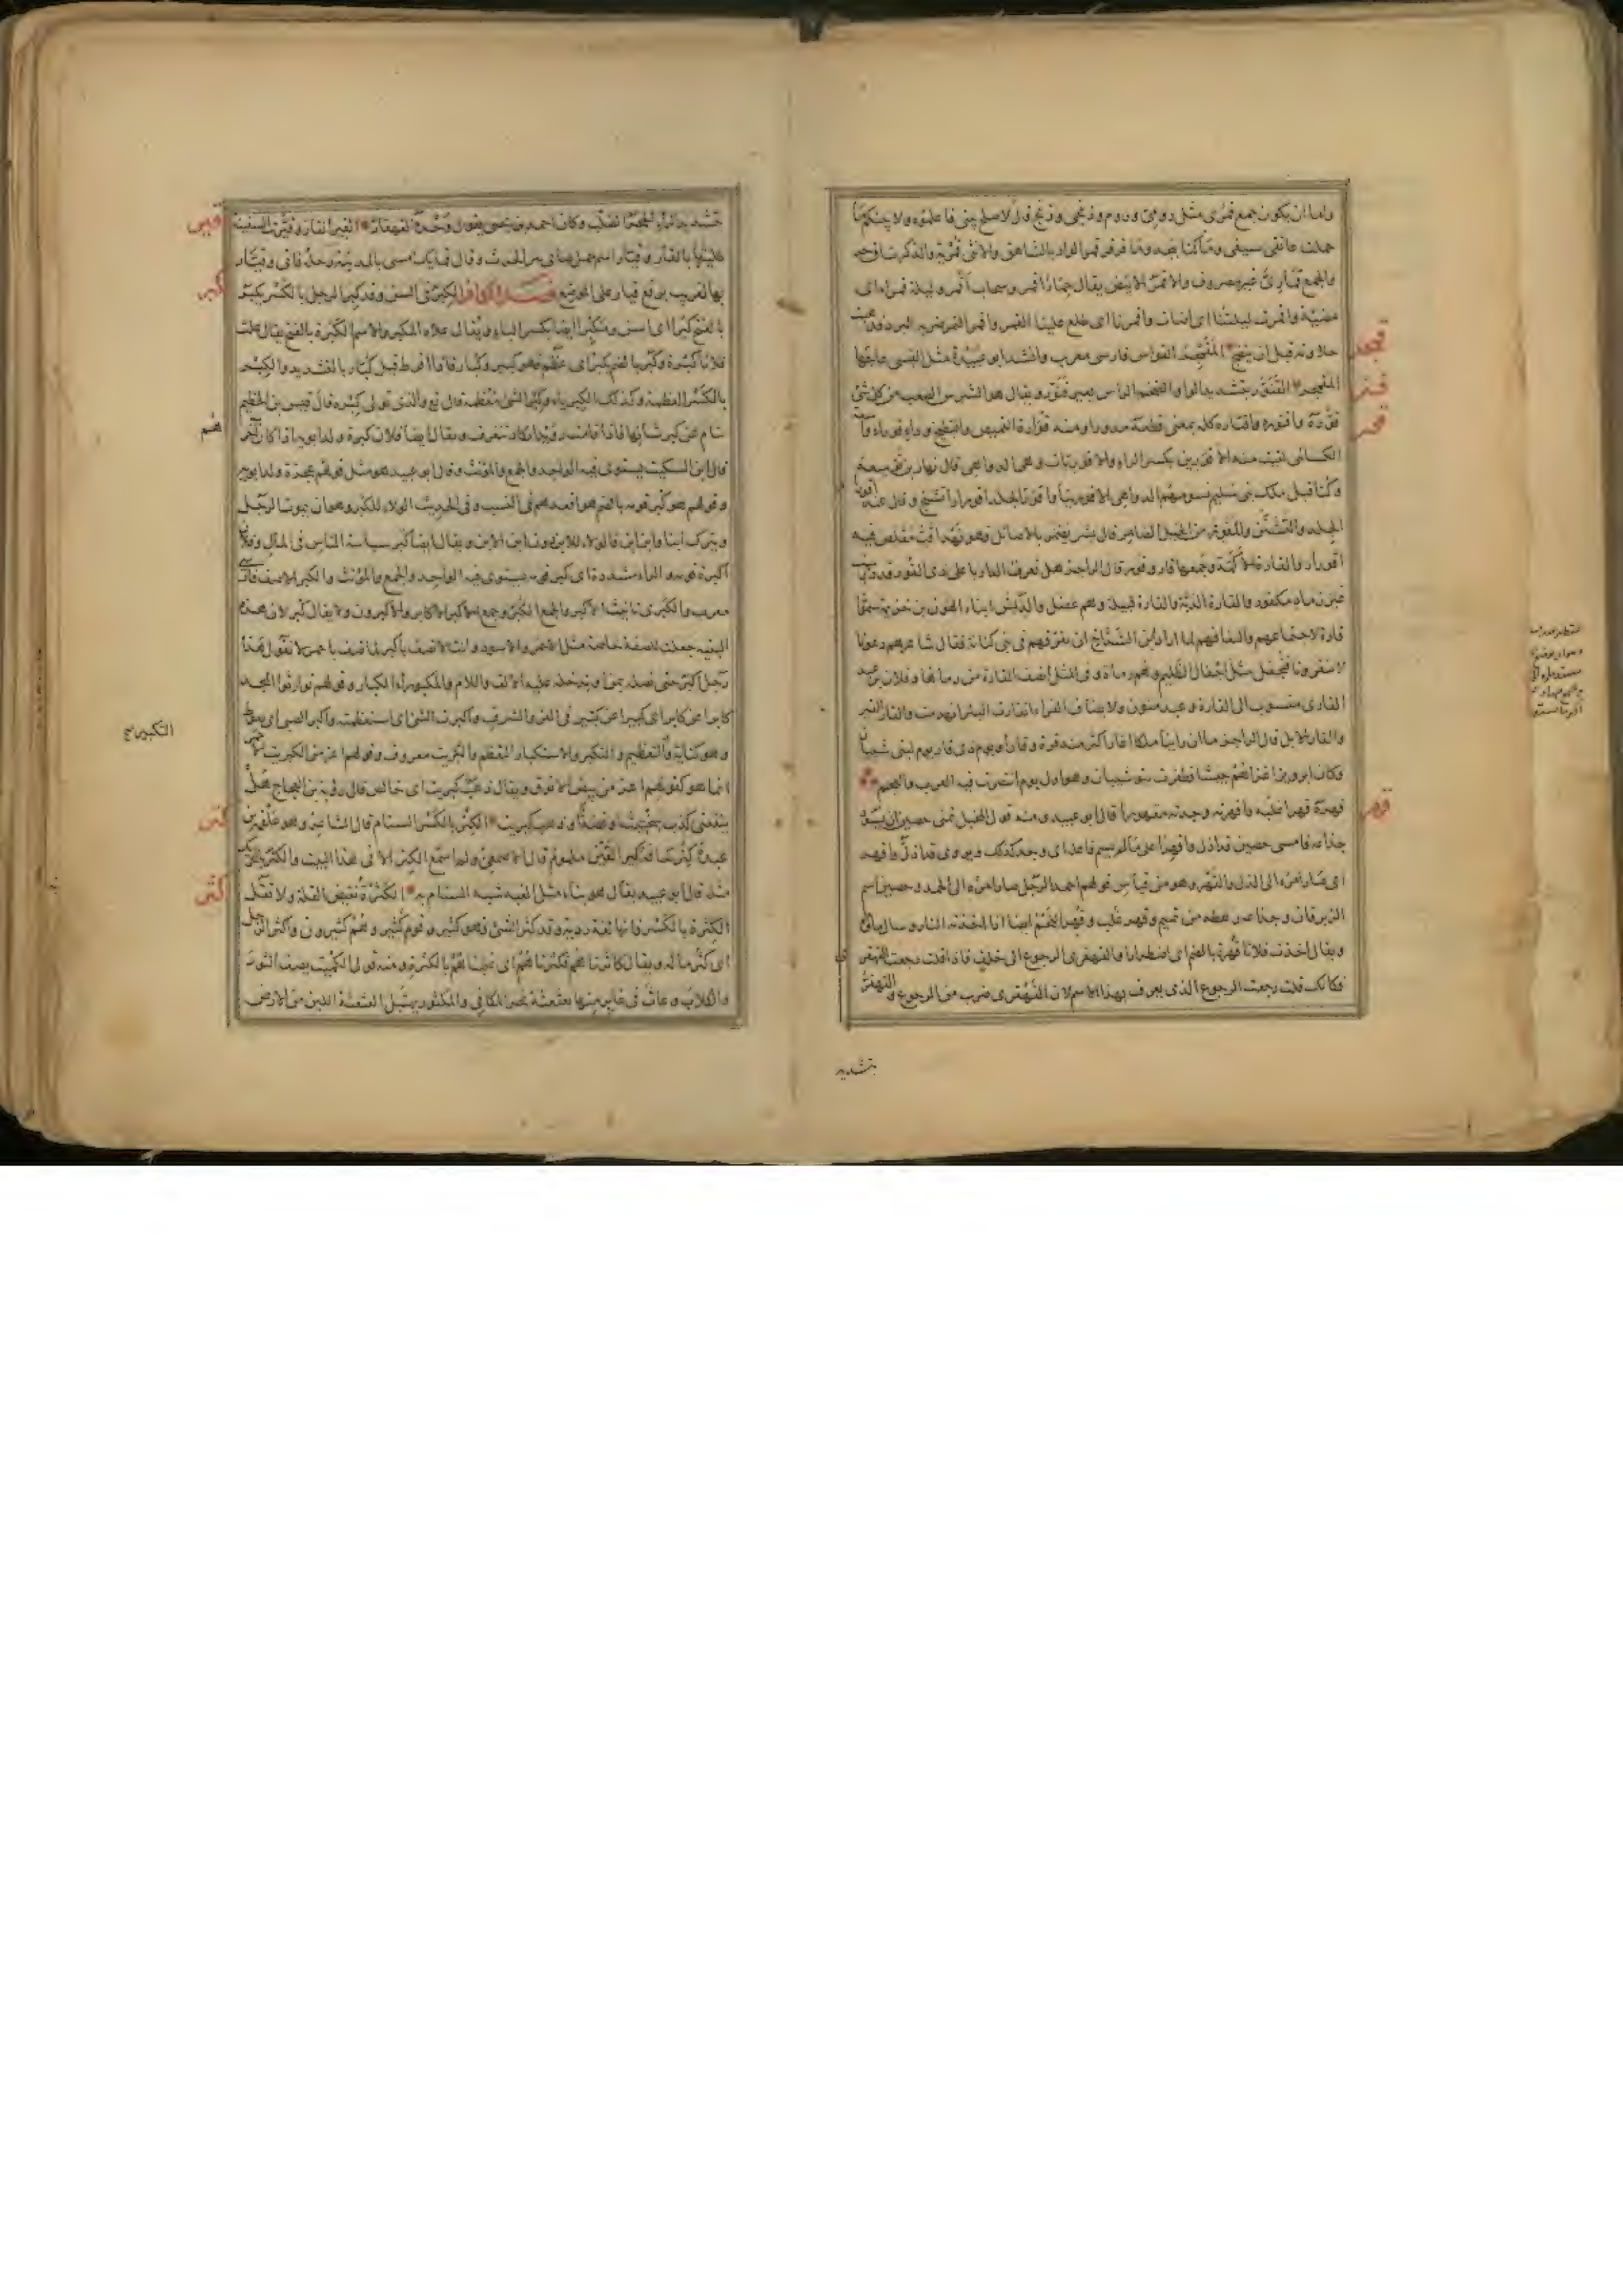 واما ان يكون جمع قمرى مثل رومى وروم وزنجى وزنج قال لا صلح بينى فاعلموه ولا بينكم ما
حملت عاتقى سيفى وما كنا بنجد وما قرقر قمر الواد بالشاهق والانثى قمرية والذكر ساق حر
والجمع قمارى غير مصروف والاقمر الابيض يقال حمار اقمر وسحاب اقمر وليلة قمراء اى
مضيئة واقمرت ليلتنا اى اضاءت واقمرنا اى طلع علينا القمر واقمر التمر ضربه البرد فذهبت
حلاوته قبل ان ينضج المقمجر القواس فارسى معرب وانشد ابو عبيدة مثل القسى عاجها
المقمجر القنور بتشديد الواو الضخم الراس بعير قنور ويقال هو الشرس الصعب من كل شئ
قوره واقتوره واقتاره كله بمعنى قطعه مدورا ومنه قوارة القميص والبطيخ ودار قوراء واسعة
الكسائى لقيت منه الاقورين بكسر الراء والاقوريات وهى الدواهى قال نهار بن توسعة
وكنا قبل ملك بنى سليم نسومهم الدواهى الاقورينا واقور الجلد اقورارا تشنج وقال
الجلد والتشنن والمقور من الخيل الضامر قال بشر يضمر بالاصائل فهو نهد اقب مقلص فيه
اقورار والقارة الاكمة وجمعها قار وقور قال الراجز هل تعرف الدار باعلى ذى القور قد درست
غير رماد مكفور والقارة الدبة والقارة قبيلة وهم عضل والديش ابناء الهون بن خزيمة سموا
قارة لاجتماعهم والتفافهم لما اراد ابن الشداخ ان يفرقهم فى بنى كنانة فقال شاعرهم دعونا
لا تنفرونا فنجفل مثل اجفال الظليم وهم رماة وفى المثل انصف القارة من راماها وفلان بن عبد
القارى منسوب الى القارة وعبد منون ولا يضاف والقار القير
والقار الابل قال الراجز ما ان راينا ملكا اغارا اكثر منه قرة وقارا ويوم ذى قار يوم لبنى شيبان
وكان ابرويز اغزاهم جيشا فظفرت بنو شيبان وهو اول يوم انتصرت فيه العرب والعجم
قهره قهرا غلبه واقهرته وجدته مقهورا قال ابو عبيد ومنه قول المخبل تمنى حصين ان يسود
جذاعه فامسى حصين قد اذل واقهرا على ما لم يسم فاعله اى وجد كذلك ويروى قد اذل واقهر
اى صار امره الى الذل والقهر وهو من قياس قولهم احمد الرجل صار امره الى الحمد وحصين اسم
الزبرقان وجذاعه رهطه من تميم وقهر غلب
ويقال اخذت فلانا قهرة بالضم اى اضطرارا والقهقرى الرجوع الى خلف فاذا قلت رجعت القهقرى
فكانك قلت رجعت الرجوع الذى يعرف بهذا الاسم لان القهقرى ضرب من الرجوع والقهقر
بتشديد
قمجر
قنر
قور
قهر
بتشديد الراء الحجر الصلب وكان احمد بن يحيى يقول وحده القهقار القير القار وقيرت السفينة
طليتها بالقار وقيار اسم جمل ضابئ بن الحرث وقال فمن يك امسى بالمدينة رحله فانى وقيار
بها لغريب برفع قيار على الموضع فصل الكاف الكبر فى السن وقد كبر الرجل بالكسر يكبر
بالفتح كبرا اى اسن ومكبرا ايضا بكسر الباء ويقال علاه المكبر والاسم الكبرة بالفتح يقال علت
فلانا كبرة وكبر بالضم يكبر اى عظم فهو كبير وكبار فاذا افرط قيل كبار بالتشديد والكبر
بالكسر العظمة وكذلك الكبرياء وكبر الشئ معظمه قال تع والذى تولى كبره قال قيس بن الخطيم
تنام عن كبر شانها فاذا قامت رويدا تكاد تنغرف ويقال ايضا فلان كبرة ولد ابويه اذا كان آخرهم
قال ابن السكيت يستوى فيه الواحد والجمع والمؤنث وقال ابو عبيد هو مثل قولهم عجزة ولد ابويه
وقولهم هو كبر قومه بالضم هو اقعدهم فى النسب وفى الحديث الولاء للكبر وهو ان يموت الرجل
ويترك ابنا وابن ابن فالولاء للابن دون ابن الابن ويقال ايضا كبر سياسة الناس فى المال وفلان
اكبرة قومه والراء مشددة اى كبر قومه يستوى فيه الواحد والجمع والمؤنث والكبر
معرب والكبرى تانيث الاكبر والجمع الكبر وجمع الاكبر الاكابر والاكبرون ولا يقال كبر لان هذه
البنية جعلت للصفة خاصة مثل الاحمر والاسود وانت لا تصف باكبر كما تصف باحمر لا تقول هذا
رجل اكبر حتى تصله بمن او تدخل عليه الالف واللام والمكبوراء الكبار وقولهم توارثوا المجد
كابرا عن كابر اى كبيرا عن كبير فى العز والشرف واكبرت الشئ اى استعظمته واكبر الصبى اى تغوط
وهو كناية والتعظيم والتكبر والاستكبار التعظم والكبريت معروف وقولهم اعز من الكبريت الاحمر
انما هو كقولهم اعز من بيض الانوق ويقال ذهب كبريت اى خالص قال رؤبة بن العجاج هل
ينفعنى كذب سختيت او فضة او ذهب كبريت الكتر بالكسر السنام قال الشاعر وهو علقمة بن
عبدة كتر كحافة كير القين ملموم قال الاصمعى ولم اسمع الكتر الا فى هذا البيت والكتر بالتحريك
مثله قال ابو عبيد يقال هو بناء مثل القبة شبه السنام به الكثرة نقيض القلة ولا تقل
الكثرة بالكسر فانها لغة رديئة وقد كثر الشئ فهو كثير وقوم كثير وهم كثيرون واكثر الرجل
اى كثر ماله ويقال كاثرناهم فكثرناهم اى غلبناهم بالكثرة ومنه قول الكميت يصف الثور
والكلاب وعاث فى غابر منها بعثعثة نحر المكافئ والمكثور يهتبل العثعثة اللين من الارض
قير
كبر
التكبير صح
كتر
كثر